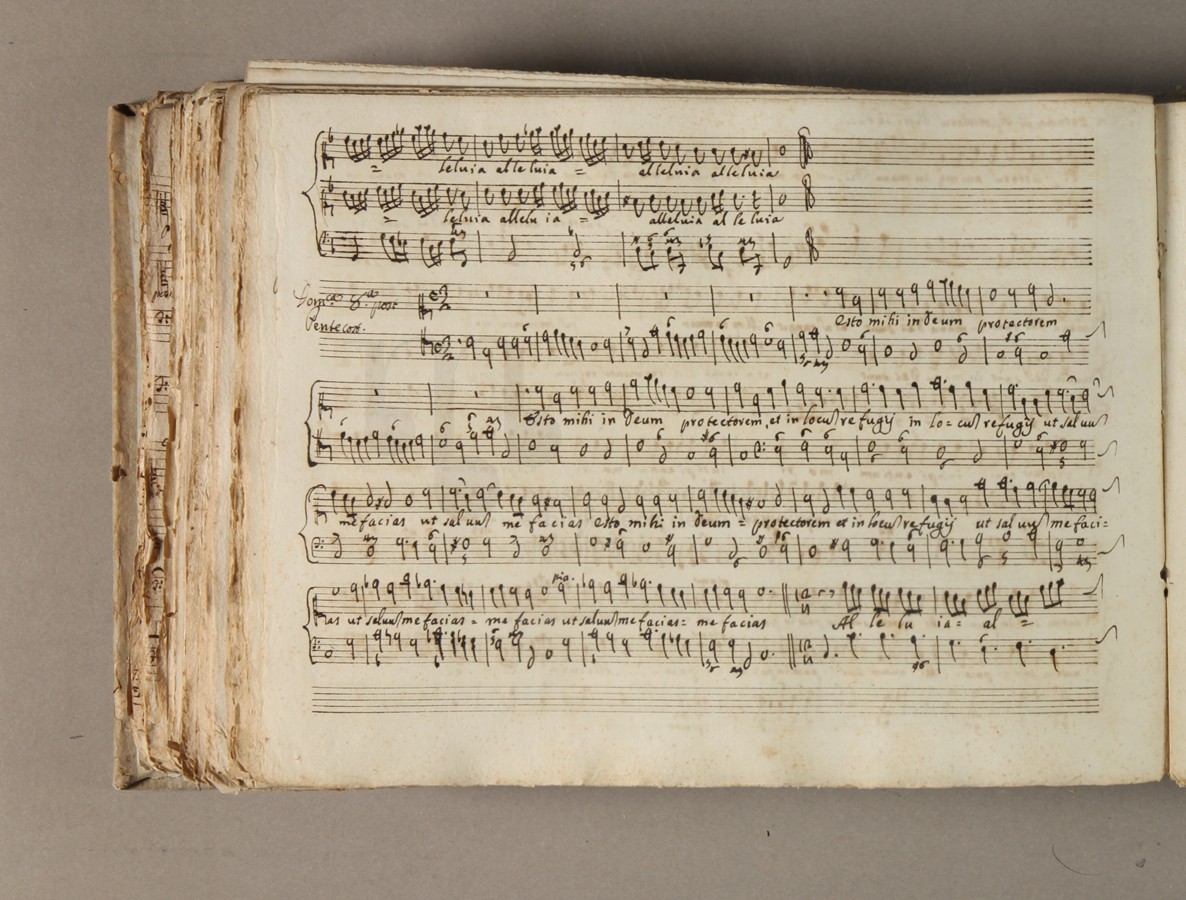 = leluia alleluia = alleluia alleluia
= leluia allelu ia = alleluia al le luia
Dom.ca 8.va post
Pentecost.
Esto mihi in Deum protectorem
Esto mihi in Deum protectorem, et in locuſ refugij in lo= cuſ refugij ut sal uuſ
me facias ut sal uuſ me facias Esto mihi in Deum = protectorem et in locuſ refugij ut sal uuſ me faci=
pia.
as ut saluuſ me facias = me facias ut saluuſ me facias= me facias Al le lu ia= al =